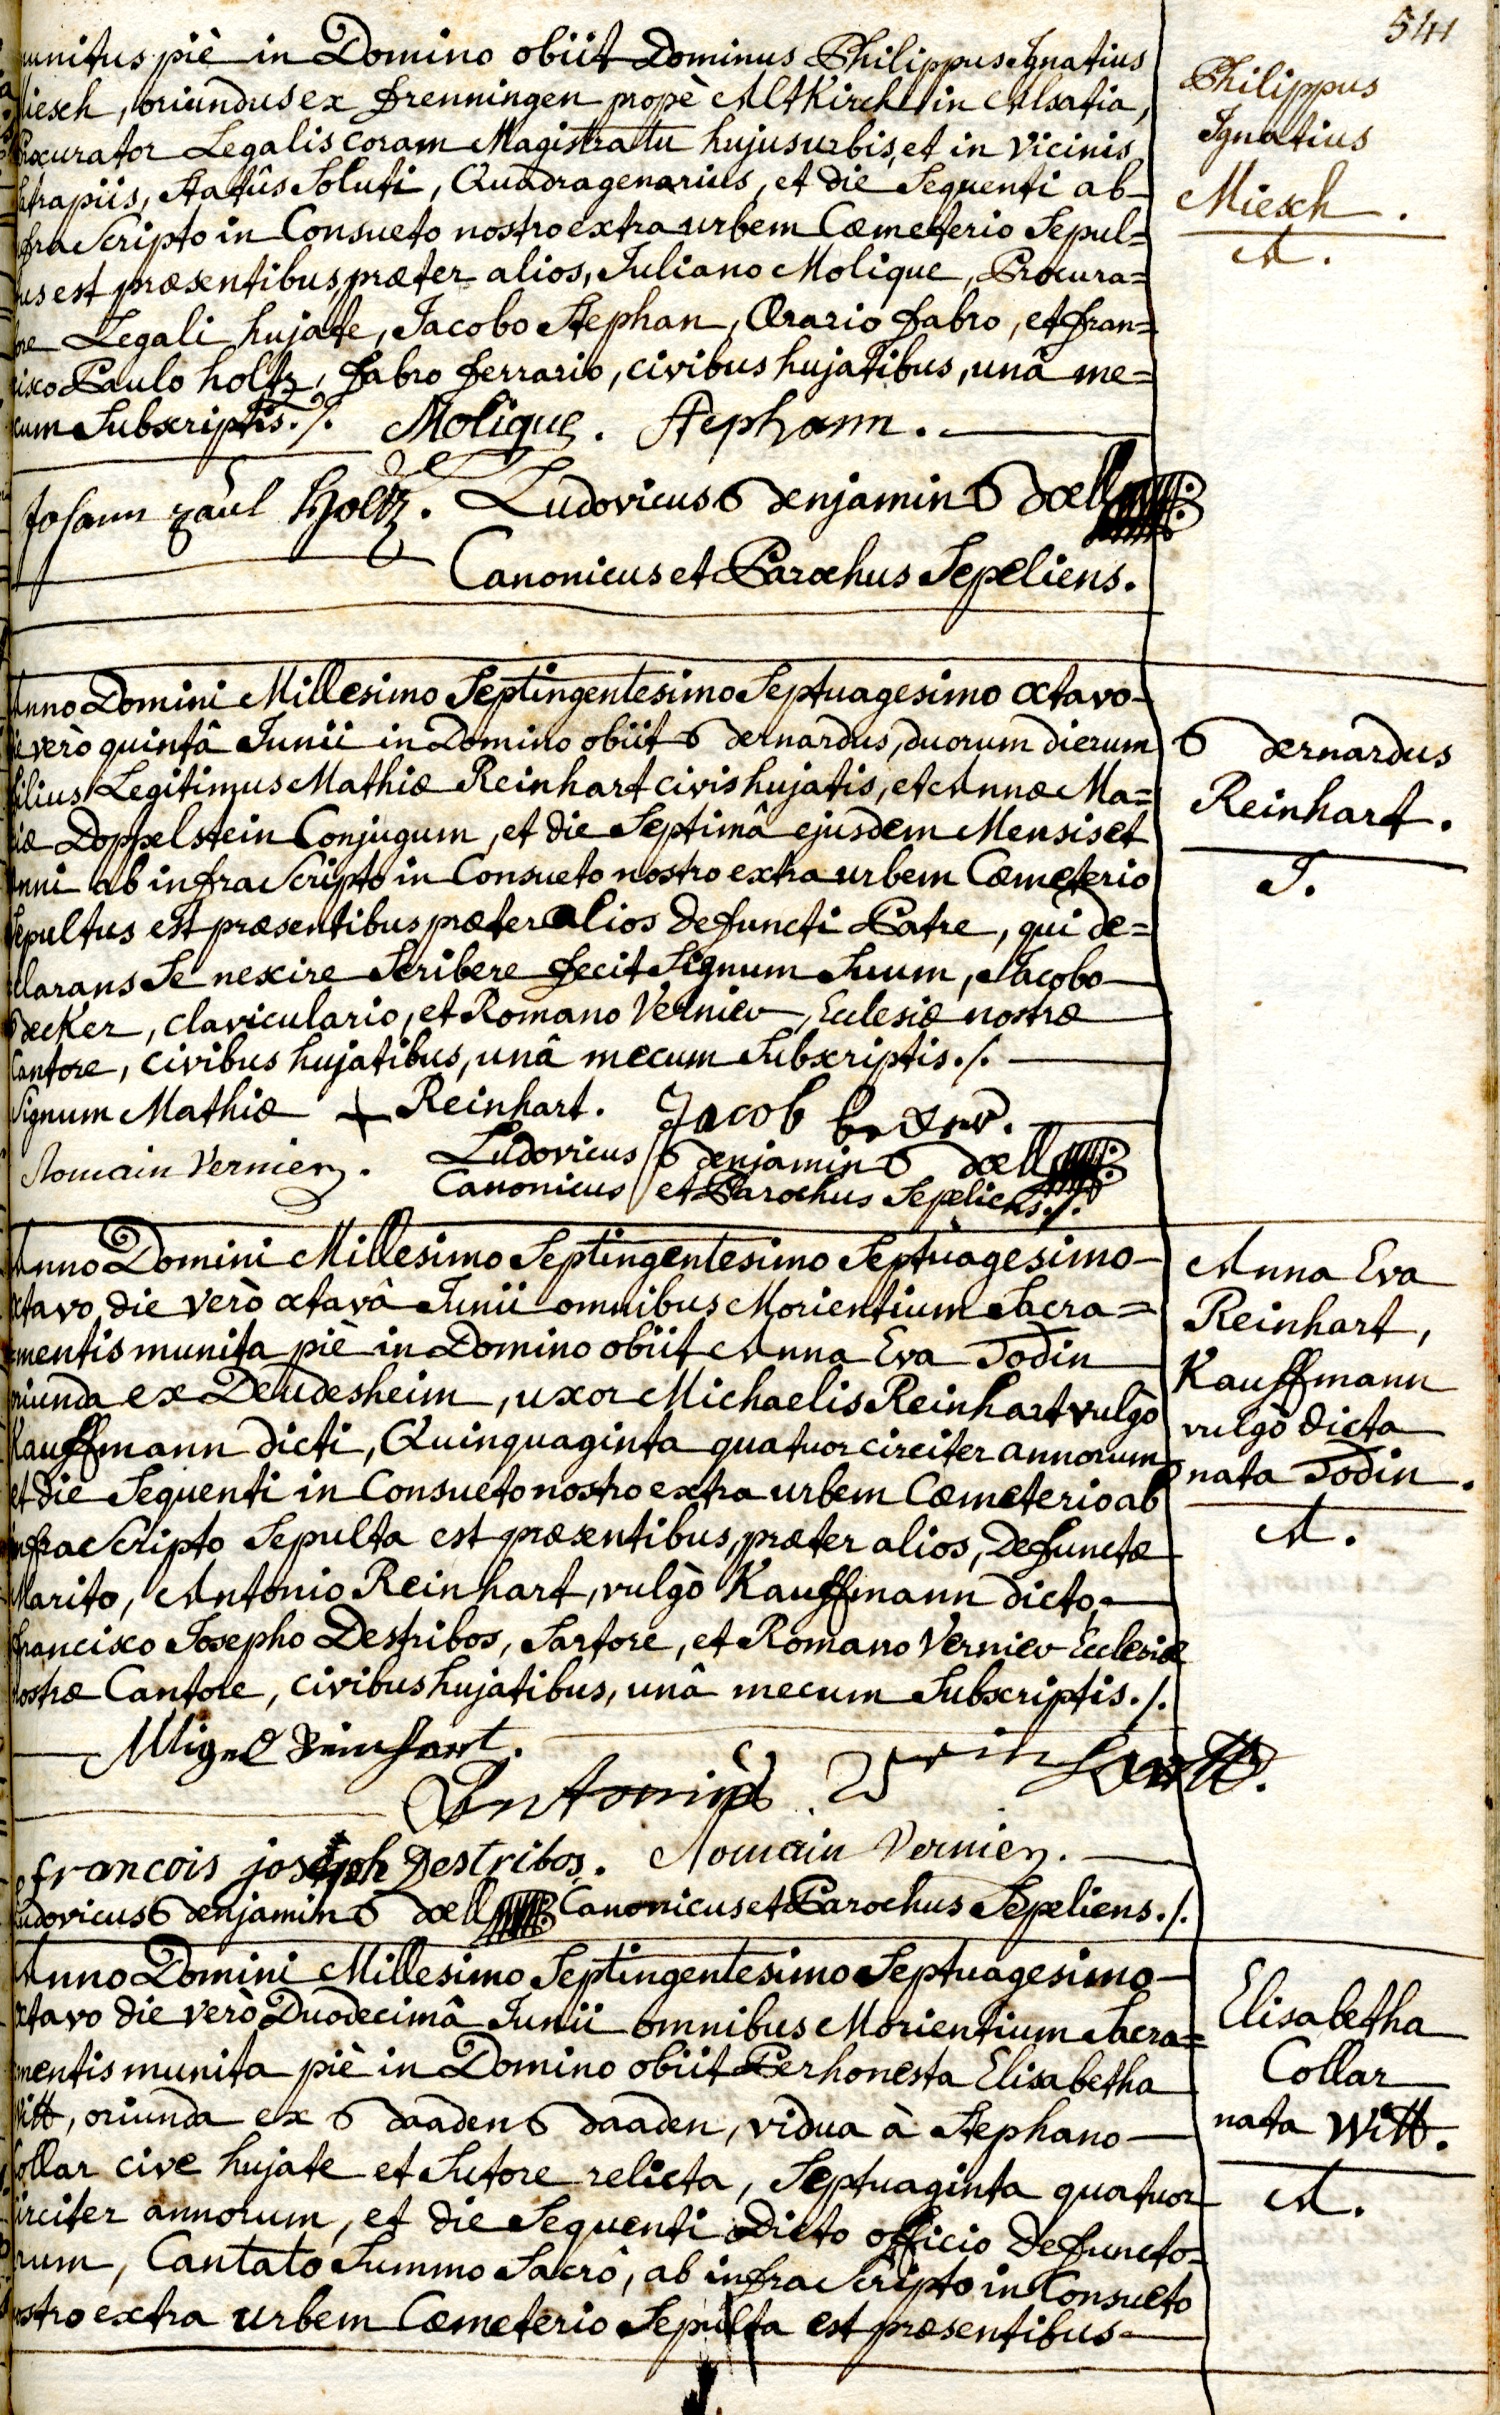 541
munitus piè in Domino obiit Dominus Philippus Ignatius
Miesch, oriundus ex Frenningen propè Altkirch in Alsatia,
Procurator Legalis coram Magistratu hujus urbis, et in vicinis
Satrapiis, statûs Soluti, Quadragenarius, et die Sequenti ab
infra Scripto in Consueto nostro extra urbem Cœmeterio Sepul=
tus est præsentibus, præter alios, Juliano Molique, Procura=
tore Legali hujate, Jacobo Stephan, Ærario fabro, et Fran=
cisco Paulo Holtz, fabro ferrario, civibus hujatibus, unâ me=
cum Subscriptis ./.
Molique. Stephann.
Johann Paul Holtz. Ludovicus Benjamin Boell
Canonicus et Parochus Sepeliens.
Philippus
Ignatius
Miesch.
A.
Anno Domini Millesimo Septingentesimo Septuagesimo octavo
die verò quintâ Junii in Domino obiit Bernardus, duorum dierum
filius Legitimus Mathiæ Reinhart civis hujatis, et Annæ Ma=
riæ Doppelstein Conjugum, et die Septimâ ejusdem Mensis et
Anni ab infra Scripto in Consueto nostro extra urbem Cœmeterio
Sepultus est præsentibus præter alios defuncti Patre, qui de=
clarans Se nescire Scribere fecit Signum Suum, Jacobo
Becker, claviculario, et Romano Vernier, Ecclesiæ nostræ
Cantore, civibus hujatibus, unâ mecum Subscriptis ./.
Signum Mathiæ + Reinhart. Jacob becker.
Romain Vernier. Ludovicus Benjamin Boell
Canonicus et Parochus Sepeliens ./.
Bernardus
Reinhart.
J.
Anno Domini Millesimo Septingentesimo Septuagesimo
octavo die verò octavâ Junii omnibus Morientium Sacra=
mentis munita piè in Domino obiit Anna Eva Jodin
oriunda ex Deudesheim, uxor Michaelis Reinhart vulgò
Kauffmann dicti, Quinquaginta quatuor circiter annorum
et die Sequenti in Consueto nostro extra urbem Cœmeterio ab
infra Scripto Sepulta est præsentibus, præter alios, Defunctæ
Marito, Antonio Reinhart, vulgò Kauffmann dicto,
Francisco Josepho Destribos, Sartore, et Romano Vernier Ecclesiæ
nostræ Cantore, civibus hujatibus, unâ mecum Subscriptis ./.
Reinhart.
francois joseph Destribos. Romain Vernier.
Ludovicus Benjamin Boell Canonicus et Parochus Sepeliens ./.
Anna Eva
Reinhart,
Kauffmann
vulgò dicta
nata Jodin.
A.
Anno Domini Millesimo Septingentesimo Septuagesimo
octavo die verò Duodecimâ Junii omnibus Morientium Sacra=
mentis munita piè in Domino obiit Perhonesta Elisabetha
Witt, oriunda ex Baaden Baaden, vidua à Stephano
Collar cive hujate et Sutore relicta, Septuaginta quatuor
circiter annorum, et die Sequenti Dicto officio Defuncto=
rum, Cantato Summo Sacrô, ab infra Scripto in Consueto
nostro extra urbem Cœmeterio Sepulta est præsentibus
Elisabetha
Collar
nata Witt.
A.